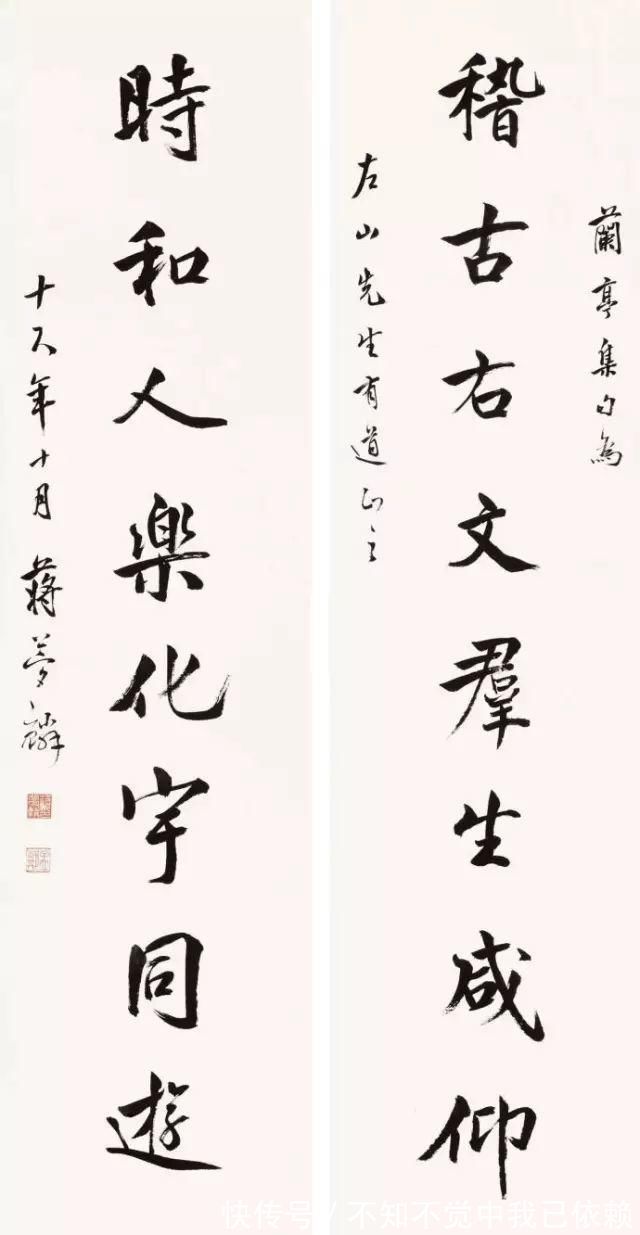 蘭亭集句為
稽古右文羣生咸仰
左山先生有道正之
時和人樂化宇同遊
十八年十月蔣夢麟
快传号 / 不知不觉中我已依赖